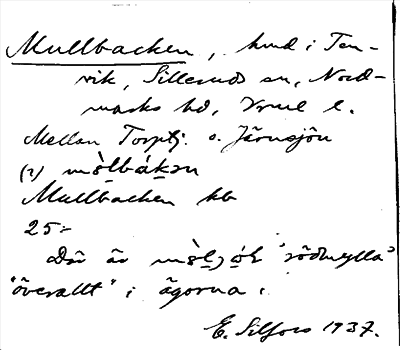 Mullbacken, hmd i Ten-
vik, Sillerud sn, Nord-
marks hd, Vrml l.
Mellan Torptj. o. Järnsjön
(2) mɵ̀lbákən
Mullbacken hb
25:-
Där är "rödmylla"
"överallt" i ägorna.
E. Silfors 1937.